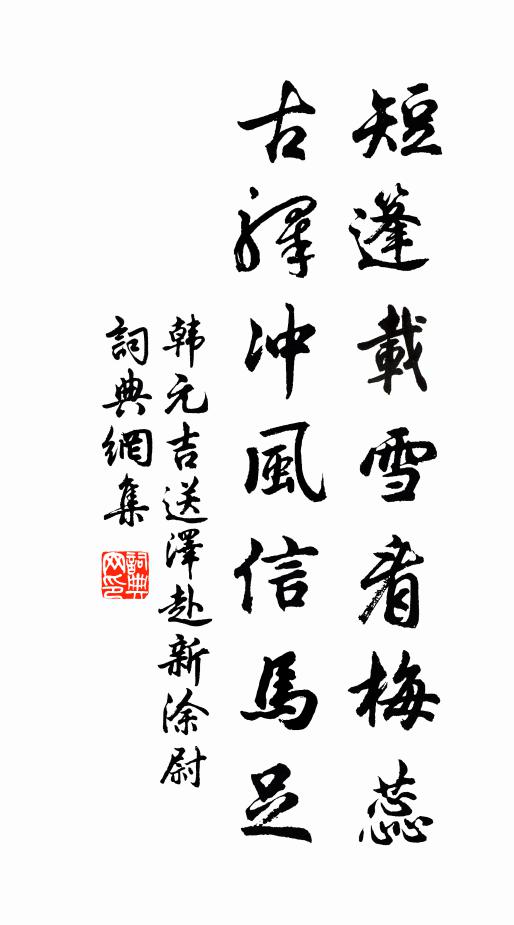 短篷載雪看梅蕊
古驛沖風信馬足
韩元吉送澤赴新淦尉
詞典網集
詞典网印